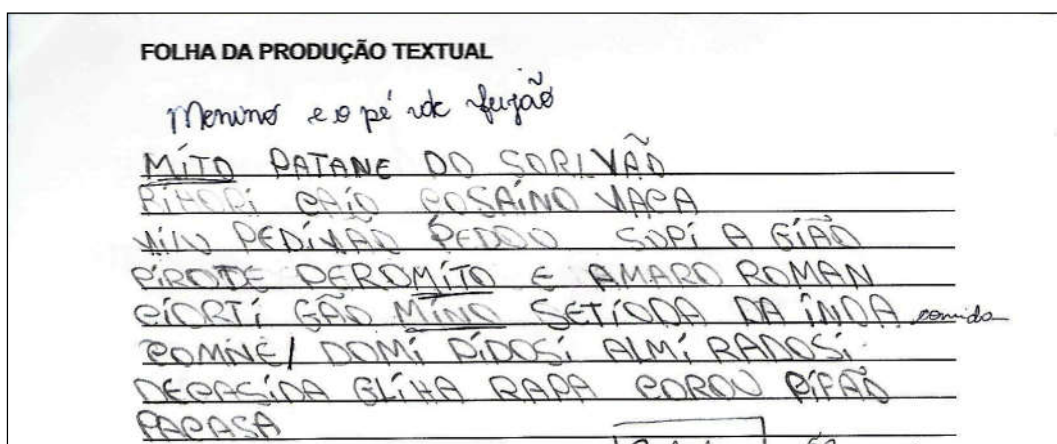 FOLHA DA PRODUÇÃO TEXTUAL
Menino e o pé de feijão
MÍTO PATANE DO SORIVÃO
CAÍO COSAÍNO VACA
PEDÍVAO PEDOO SOPÍ A GIÃO
PÍROTE PEROMÍTO E AMARO ROMAN
CÍORTÍ GÃO MÍNO SETÍODA DA ÍNDA comida
COMNE/ DOMÍ PÍDOSÍ ALMÍ RADOSÍ
DECASÍDA GLÍHA RAPA COROU PÍFÃO
PACASA